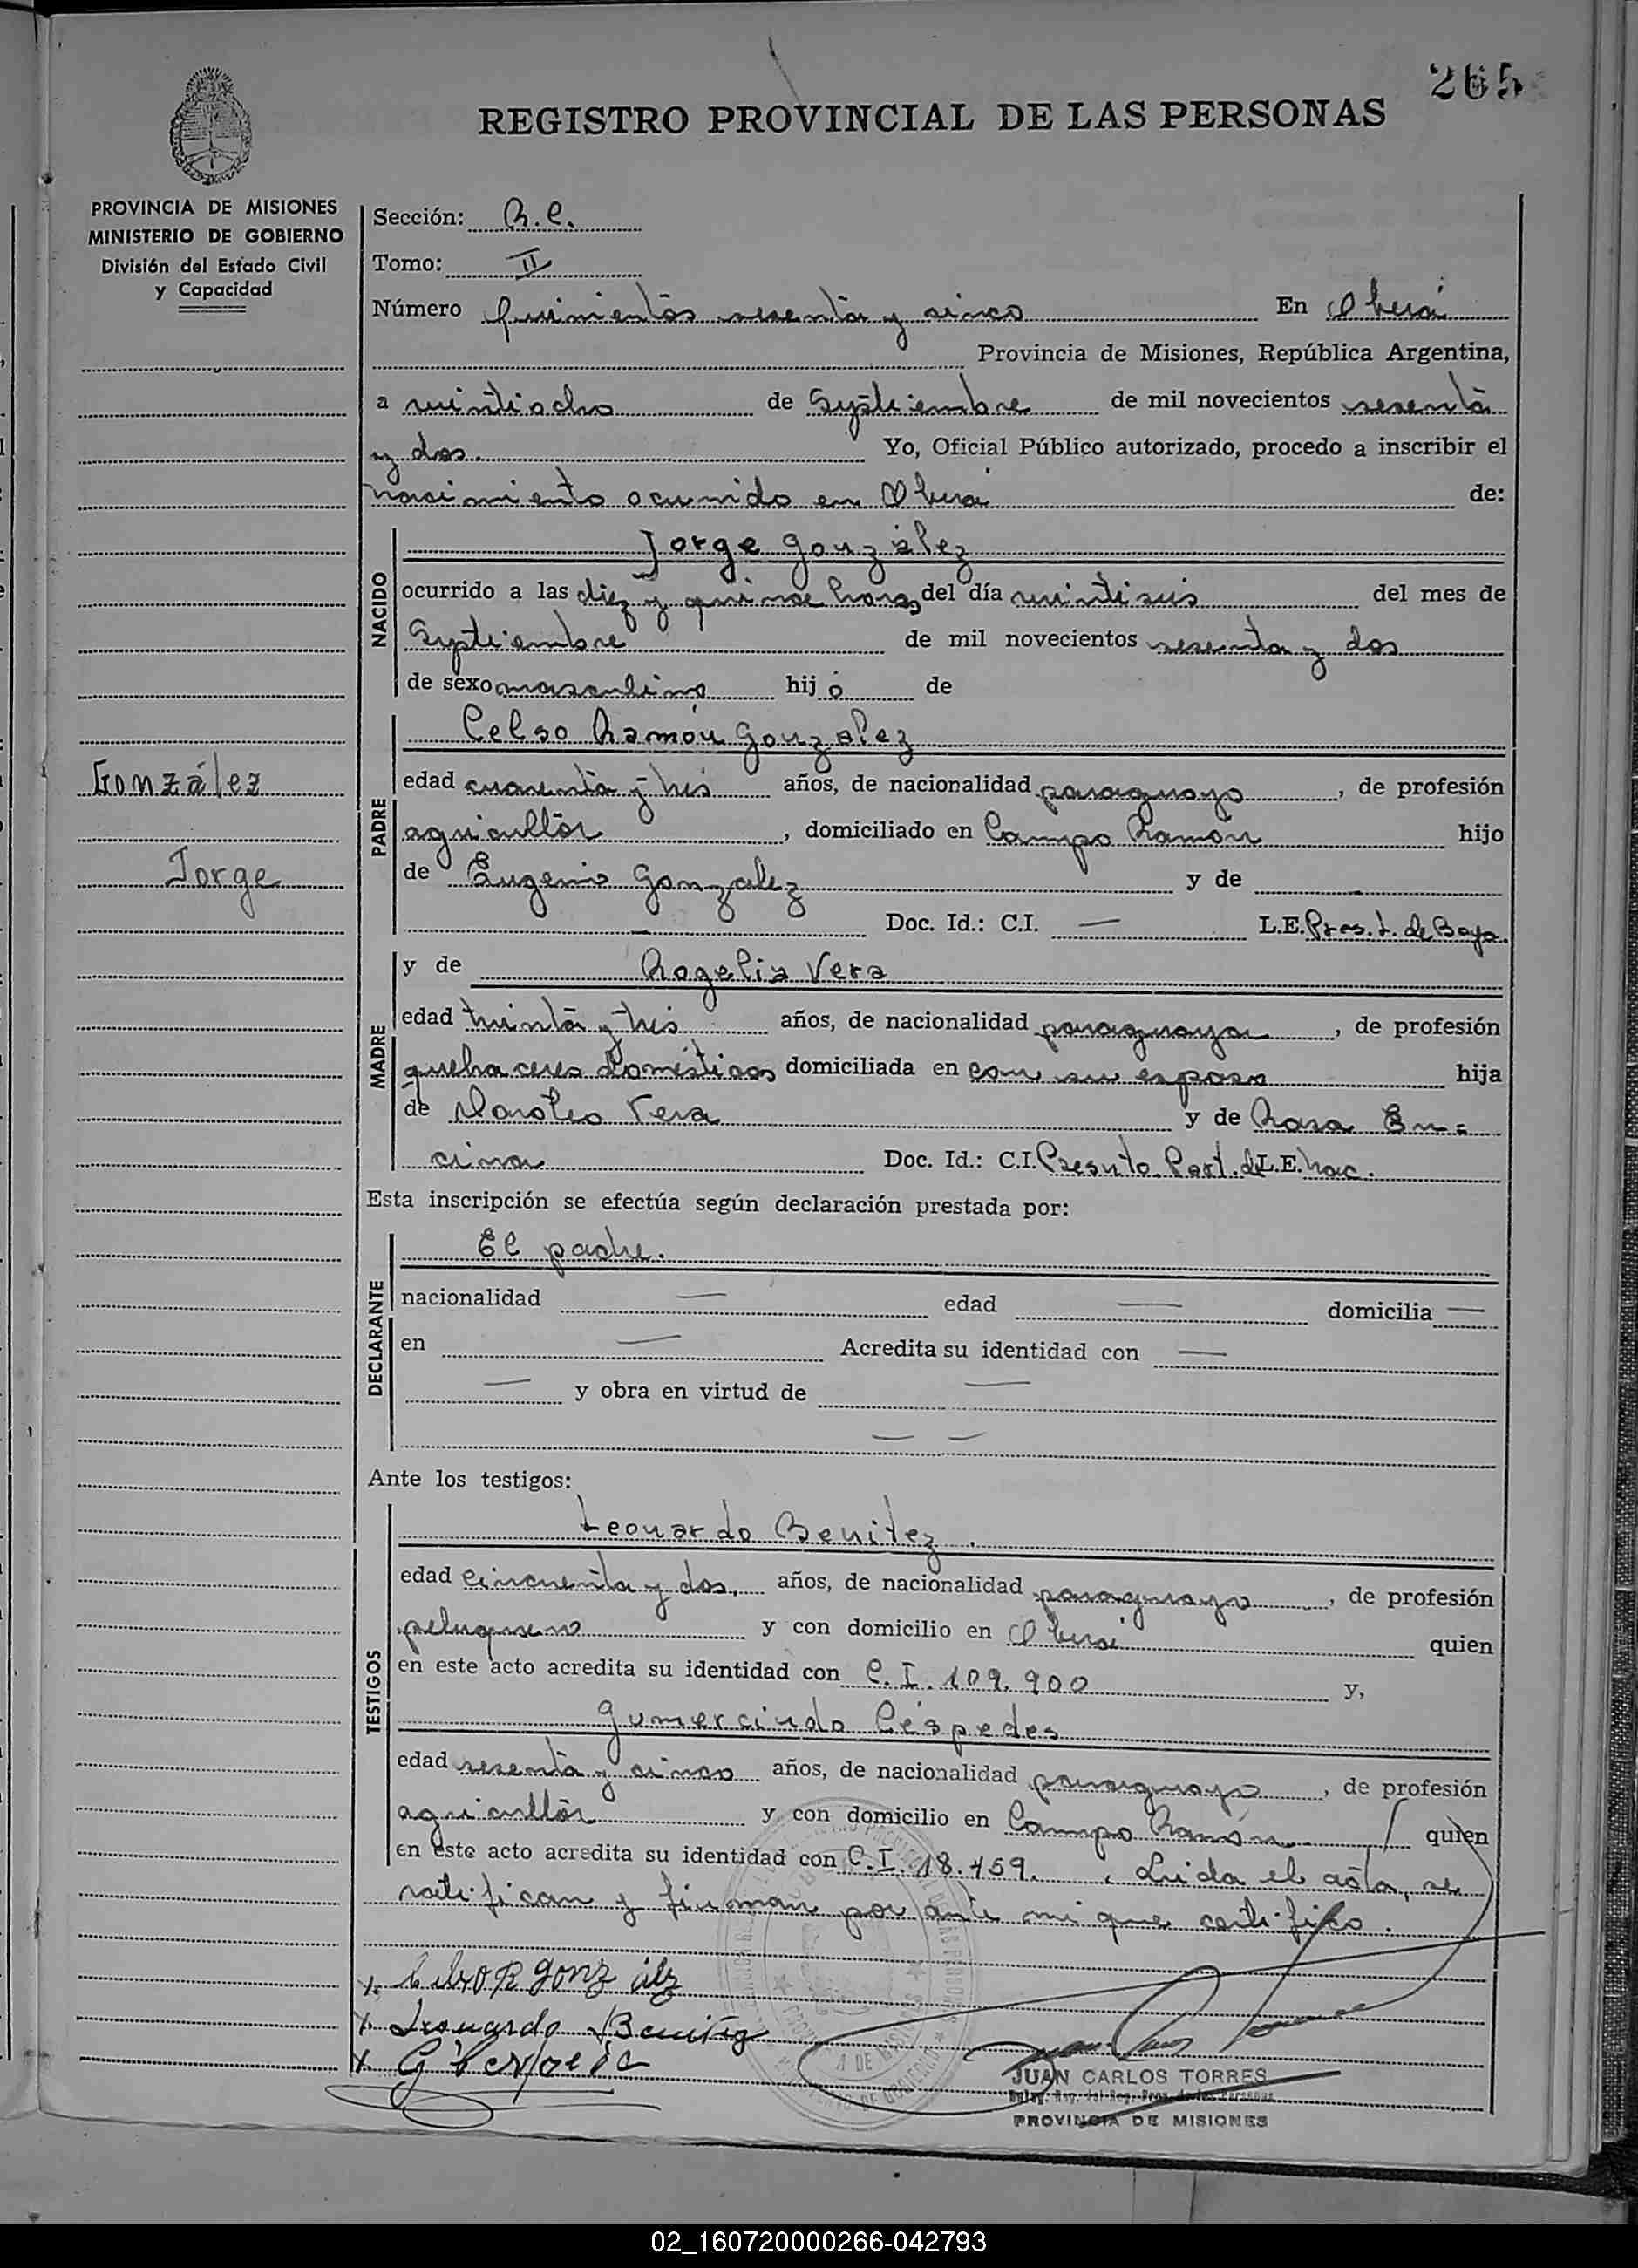 265
REGISTRO PROVINCIAL DE LAS PERSONAS
PROVINCIA DE MISIONES
MINISTERIO DE GOBIERNO
División del Estado Civil
y Capacidad
González
Jorge
Sección: R.C.
Tomo: II
Número quinientos sesenta y cinco En Oberá
Provincia de Misiones, República Argentina,
a veintiocho de Septiembre de mil novecientos sesenta
y dos. Yo, Oficial Público autorizado, procedo a inscribir el
nacimiento ocurrido en Oberá de:
NACIDO
Jorge González
ocurrido a las diez y quince horas del día veintiseis del mes de
Septiembre de mil novecientos sesenta y dos
de sexo masculino hijo de
PADRE
Celso Ramón González
edad cuarenta y tres años, de nacionalidad paraguayo, de profesión
agricultor, domiciliado en Campo Ramón hijo
de Eugenio Gonzalez y de —
— Doc. Id.: C.I. — L.E. Pres. L. de Baja.
MADRE
y de Rogelia Vera
edad treinta y tres años, de nacionalidad paraguaya, de profesión
quehaceres domésticos domiciliada en con su esposo hija
de Doroteo Vera y de Rosa En=
cina Doc. Id.: C.I. Presento Part. de L.E. nac.
Esta inscripción se efectúa según declaración prestada por:
DECLARANTE
El padre.
nacionalidad — edad — domicilia —
en — Acredita su identidad con —
— y obra en virtud de —
— —
Ante los testigos:
TESTIGOS
Leonardo Benitez.
edad cincuenta y dos, años, de nacionalidad paraguayo, de profesión
peluquero y con domicilio en Oberá quien
en este acto acredita su identidad con C.I. 109.900 y,
Gumercindo Céspedes
edad sesenta y cinco años, de nacionalidad paraguayo, de profesión
agricultor y con domicilio en Campo Ramón quien
en este acto acredita su identidad con C.I. 18.459. . Leida el acta, se
ratifican y firman por ante mi que certifico.
x. Celso R González
x. Leonardo Benitez
x. G
JUAN CARLOS TORRES
PROVINCIA DE MISIONES
02_160720000266-042793